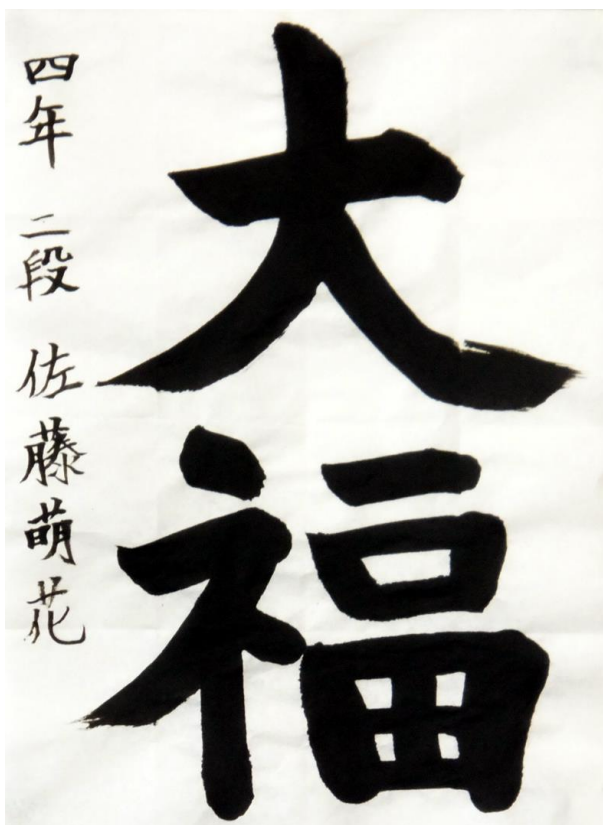 大福
四年 二段 佐藤萌花